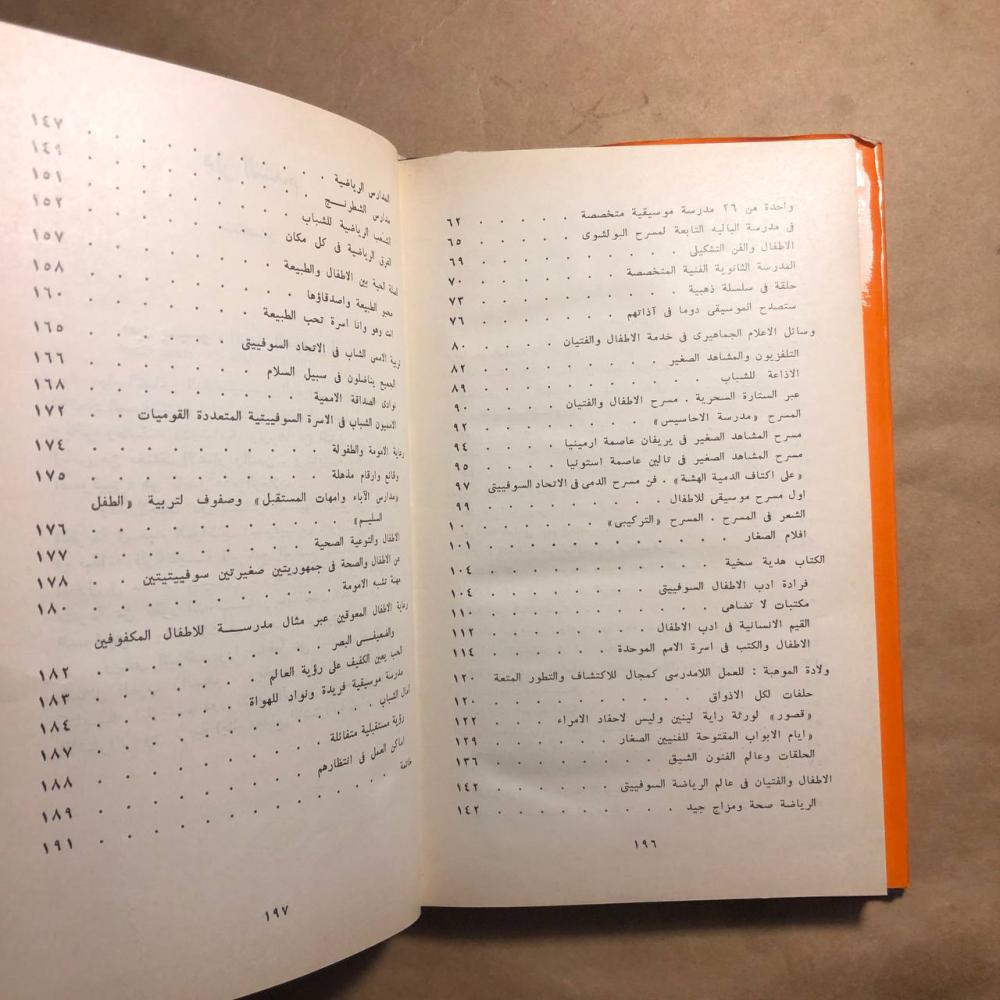 واحدة من ٢٦ مدرسة موسيقية متخصصة . . . . . ٦٢
في مدرسة الباليه التابعة لمسرح البولشوى . . . . ٦٥
الاطفال والفن التشكيلى . . . . . . . . ٦٩
المدرسة الثانوية الفنية المتخصصة . . . . . ٧٠
حلقة فى سلسلة ذهبية . . . . . . . . ٧٣
ستصدح الموسيقى دوما فى آذانهم . . . . . . ٧٦
وسائل الاعلام الجماهيرى فى خدمة الاطفال والفتيان . . . ٨٠
التلفزيون والمشاهد الصغير . . . . . . . ٨٢
الاذاعة للشباب . . . . . . . . . ٨٩
عبر الستارة السحرية . مسرح الاطفال والفتيان . . . ٩٠
المسرح «مدرسة الاحاسيس» . . . . . . . ٩٢
مسرح المشاهد الصغير فى يريفان عاصمة ارمينيا . . . ٩٤
مسرح المشاهد الصغير فى تالين عاصمة استونيا . . . ٩٥
«على اكتاف الدمية الهشة» . فن مسرح الدمى فى الاتحاد السوفييتى ٩٧
اول مسرح موسيقى للاطفال . . . . . . . ٩٩
الشعر فى المسرح . المسرح «التركيبى» . . . . . ١٠٠
افلام الصغار . . . . . . . . . ١٠١
الكتاب هدية سخية . . . . . . . . . ١٠٤
فرادة ادب الاطفال السوفييتى . . . . . . ١٠٤
مكتبات لا تضاهى . . . . . . . . ١١٠
القيم الانسانية فى ادب الاطفال . . . . . . ١١٢
الاطفال والكتب فى اسرة الامم الموحدة . . . . . ١١٤
ولادة الموهبة : للعمل اللامدرسى كمجال للاكتشاف والتطور المتعة ١٢٠
حلقات لكل الاذواق . . . . . . . . ١٢٠
«قصور» لورثة راية لينين وليس لاحفاد الامراء . . . ١٢٢
«ايام الابواب المفتوحة للفنيين الصغار . . . . . ١٢٩
الحلقات وعالم الفنون الشيق . . . . . . . ١٣٦
الاطفال والفتيان فى عالم الرياضة السوفييتى . . . . . ١٤٢
الرياضة صحة ومزاج جيد . . . . . . . ١٤٢
١٩٦
المدارس الرياضية . . . . . . . . ١٤٧
مدارس الشطرنج . . . . . . . . ١٤٩
الشعب الرياضية للشباب . . . . . . . ١٥١
الفرق الرياضية فى كل مكان . . . . . . ١٥٣
الصلة الحية بين الاطفال والطبيعة . . . . . . ١٥٧
محبو الطبيعة واصدقاؤها . . . . . . . ١٥٨
انت وهو وانا اسرة تحب الطبيعة . . . . . . ١٦٠
تربية الاممى الشاب فى الاتحاد السوفييتى . . . . . ١٦٥
الجميع يناضلون فى سبيل السلام . . . . . . ١٦٦
نوادى الصداقة الاممية . . . . . . . . ١٦٨
الامميون الشباب فى الاسرة السوفييتية المتعددة القوميات . . ١٧٢
رعاية الامومة والطفولة . . . . . . . . ١٧٤
وقائع وارقام مذهلة . . . . . . . . ١٧٥
«مدارس الآباء وامهات المستقبل» وصفوف لتربية «الطفل
السليم» . . . . . . . . . . ١٧٦
الاطفال والتوعية الصحية . . . . . . . . ١٧٧
عن الاطفال والصحة فى جمهوريتين صغيرتين سوفييتيتين . . ١٧٨
مهنة تشبه الامومة . . . . . . . . . ١٨٠
رعاية الاطفال المعوقين عبر مثال مدرسة للاطفال المكفوفين
والضعيفى البصر . . . . . . . . . ١٨٢
الحب يعين الكفيف على رؤية العالم . . . . . . ١٨٣
مدرسة موسيقية فريدة ونواد للهواة . . . . . . ١٨٤
آمال الشباب . . . . . . . . . . ١٨٧
رؤية مستقبلية متفائلة . . . . . . . . ١٨٨
اماكن العمل فى انتظارهم . . . . . . . . ١٨٩
خاتمة . . . . . . . . . . . ١٩١
١٩٧